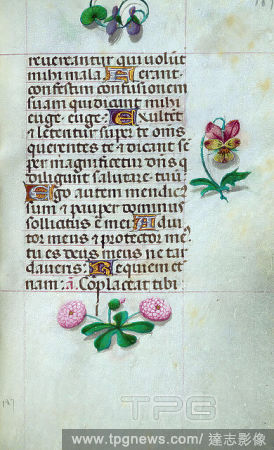 reuereantur qui uolūt
mihi mala. Ferant
confestim confusionem
suam qui dicūt mihi
euge euge. Exultēt
et letentur super te om̄s
querentes te et dicant sē
per magnificetur dn̄s q̄
diligunt salutare tuū.
Ego autem mendic9
sum et pauper dominus
sollicitus ē mei. Adiu
tor meus et protector me9
tu es deus meus ne tar
daueris. Requiem et
nam. a. Cōplaceat tibi
TPG
www.tpgnews.com / 達志影像